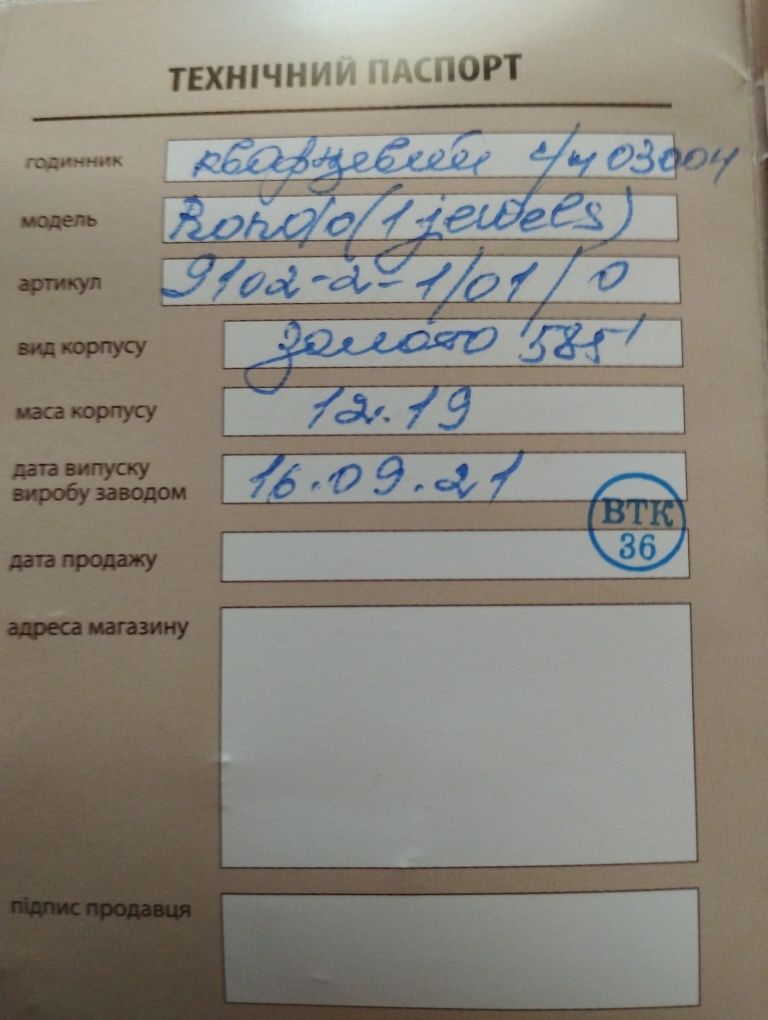 ТЕХНІЧНИЙ ПАСПОРТ
годинник кварцевий с/н 03004
модель Rondo (1 jewels)
артикул 9102-2-1/01/0
вид корпусу золото 585'
маса корпусу 12.19
дата випуску
виробу заводом 16.09.21
ВТК
36
дата продажу
адреса магазину
підпис продавця